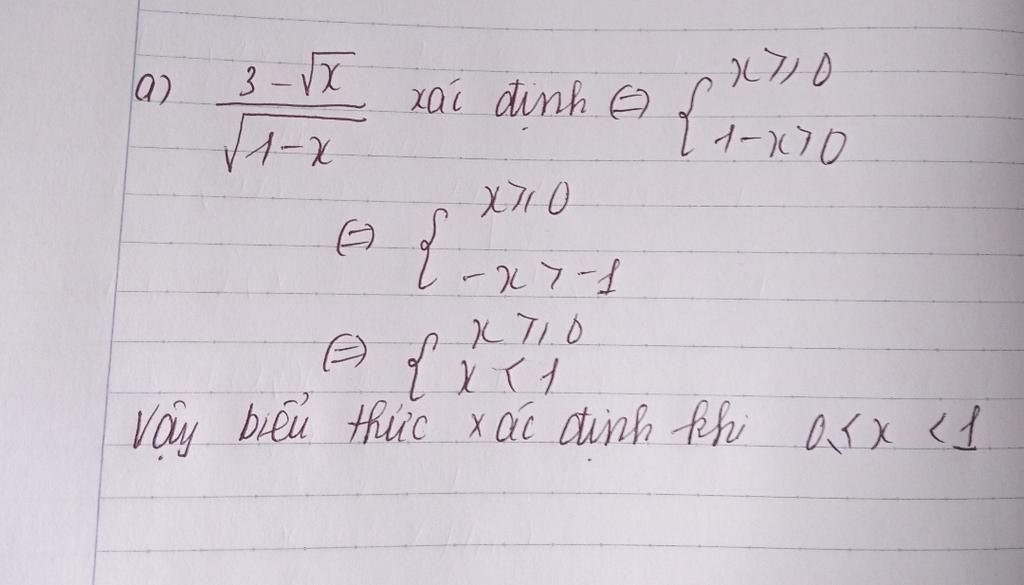 a) \frac{3-\sqrt{x}}{\sqrt{1-x}} xác định ⇔ { x ⩾ 0
1-x > 0
⇔ { x ⩾ 0
-x > -1
⇔ { x ⩾ 0
x < 1
Vậy biểu thức xác định khi 0 ⩽ x < 1